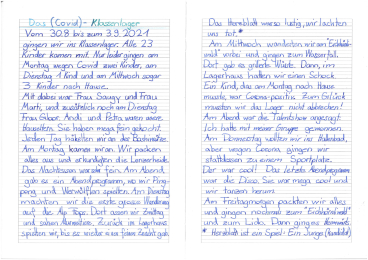 Das (Covid)- Klassenlager
Vom 30.8 bis zum 3.9.2021
gingen wir ins Klassenlager. Alle 23
Kinder kamen mit. Nur leider gingen am
Montag wegen Covid zwei Kinder, am
Dienstag 1 Kind und am Mittwoch sogar
3 Kinder nach Hause.
Mit dabei war Frau Saugy und Frau
Marti, und zusätzlich noch am Dienstag
Frau Gloor. Andi und Petra waren unsere
Hauseltern. Sie haben mega fein gekocht.
Jeden Tag hielten wir an der
Am Montag kamen wir an. Wir packten
alles aus und erkundigten die Lenzerheide.
Das Nachtessen war sehr fein. Am Abend
gab es ein Abendprogramm, wo wir Ping-
pong und Werwölfen spielten. Am Dienstag
machten wir die erste grosse Wanderung
auf die Alp Fops. Dort assen wir Znüni
und sahen Murmeltiere. Zurück im Lagerhaus
spielten wir, bis es wieder ein feines Essen gab.
Das Hornblatt war so lustig, wir lachten
uns tot.*
Am Mittwoch wanderten wir am "Eichhörnli-
wald" vorbei und gingen zum Wasserfall.
Dort gab es grillierte Würste. Dann, im
Lagerhaus hatten wir einen Schock.
Ein Kind, das am Montag nach Hause
musste, war Corona-positiv. Zum Glück
mussten wir das Lager nicht abbrechen!
Am Abend war die Talentshow angesagt.
Ich hatte mit meiner Gruppe gewonnen.
Am Donnerstag wollten wir ins Hallenbad,
aber wegen Corona gingen wir
stattdessen zu einem Sportplatz.
Der war cool! Das letzte Abendprogramm
war die Disco. Sie war mega cool und
wir tanzten herum.
Am Freitagmorgen packten wir alles
und gingen nochmals zum "Eichhörnliwald"
und zum Lido. Dann gingen
* Hornblatt ist ein Spiel: Ein Junge